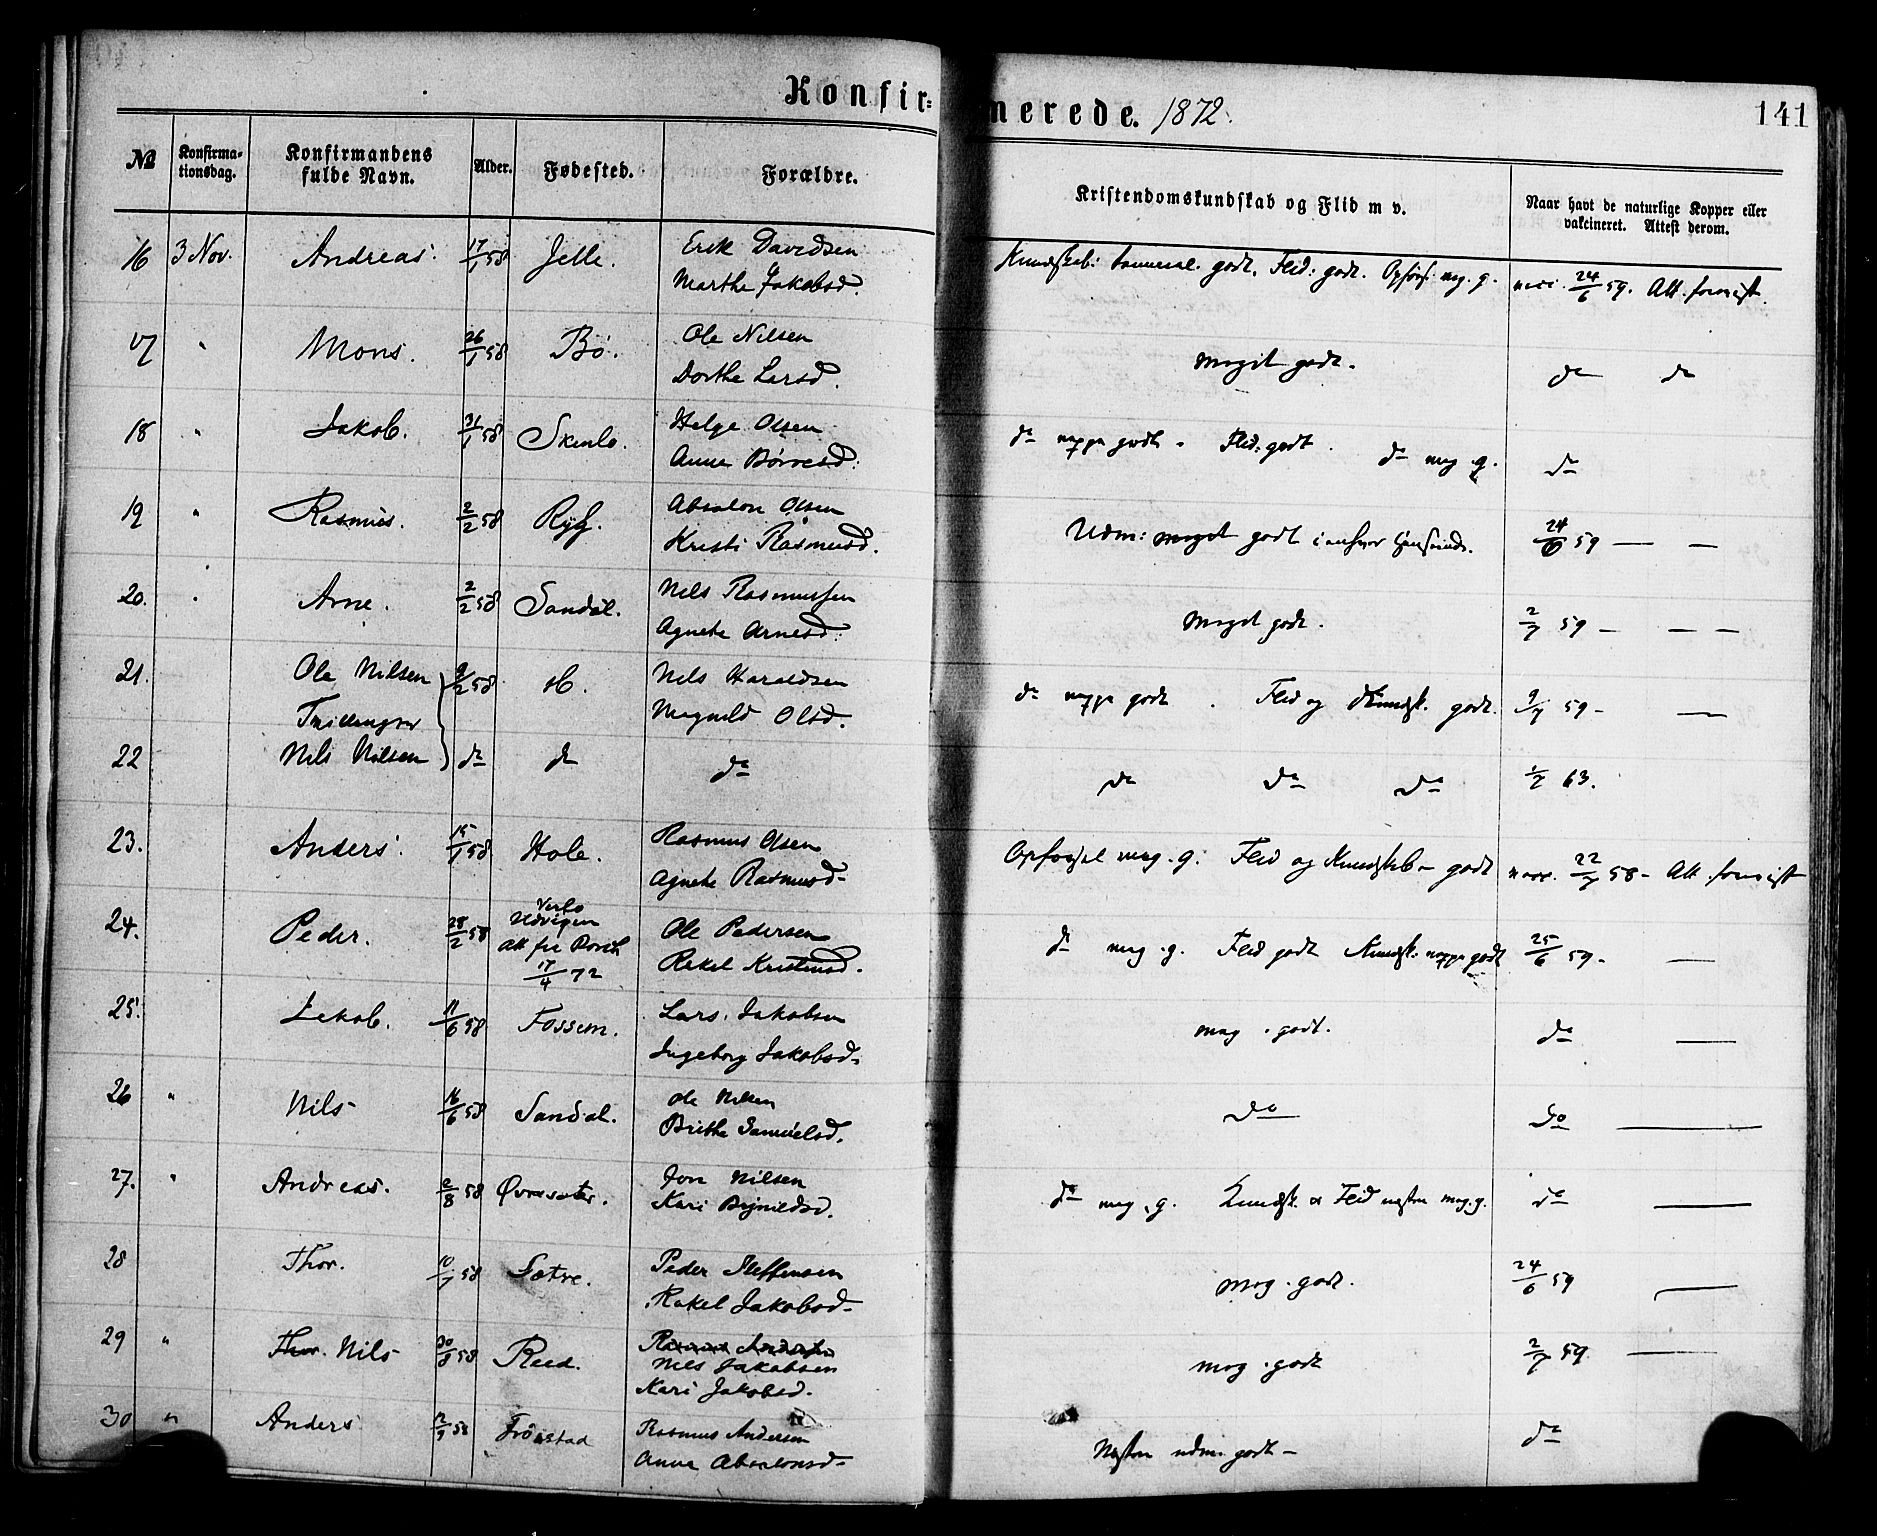 Konfir= merede. 1872. 141
№ Konfirma-tionsdag. Konfirmandens fulde Navn. Alder. Fødested. Forældre. Kristendomskundskab og Flid m v. Naar havt de naturlige Kopper eller vakcineret. Attest derom.
16 3 Nov. Andreas 17/1 58 Jelle. Erik Davidsen godt. Flid: godt. Opførs: meg. g. vacc. 24/6 59. Att. forevist.
Marthe Jakobsd.
17 " Mons. 26/1 58 Bø. Ole Nilsen
Dorthe Larsd. meget godt. do do
18 " Jakob. 31/1 58 Helge Olsen do neppe godt. Flid: godt. do meg. g. do
Anne Børresd.
19 " Rasmus. 2/2 58 Ryg. Absalon Olsen Udm: meget godt i enhver Henseende. 24/6 59 — —
Kristi Rasmusd.
20. " Arne. 2/2 58 Sandal. Nils Rasmussen
Agnete Arnesd. Meget godt. 2/7 59 — — —
21. Ole Nilsen 9/2 58 Nils Haraldsen do neppe godt. Flid og Kundsk. godt. 2/7 59 - —
Tvillinger Magnild Olsd.
22 Nils Nilsen do do do do do do 1/7 63.
23. Anders. 15/1 58 Hole. Rasmus Olsen Opførsel meg. g. Flid og Kundskab - godt vacc. 22/7 58 - Att. forevist
Agnete Rasmusd-
24. Peder. 28/2 58 Udvigen Ole Pedersen do meg. g. Flid godt Kundsk. neppe godt 25/6 59 - —
Att fra
17/4 72 Rakel Kristensd.
25. Jakob. 11/6 58 Fossem. Lars Jakobsen meg. godt. do —
Ingeborg Jakobsd.
26 " Nils 16/6 58 Sandal. Ole Nilsen do do —
Brithe Samuelsd.
27. " Andreas. 2/8 58 Jon Nilsen do meg. g. Kundsk. o Flid næsten meg. g. do —
Kari
28 Thor. 10/7 58 Sætre. Peder Steffensen
Rakel Jakobsd- meg. godt. 24/6 59 —
29 " Thor. Nils 30/8 58 Reed. Rasmus Andersen
Nils Jakobsen meg. godt 2/7 59. —
Kari Jakobsd.
30 " Anders 12/9 58 Frøistad Rasmus Andersen
Anne Absalonsd- Næsten udm. godt - do